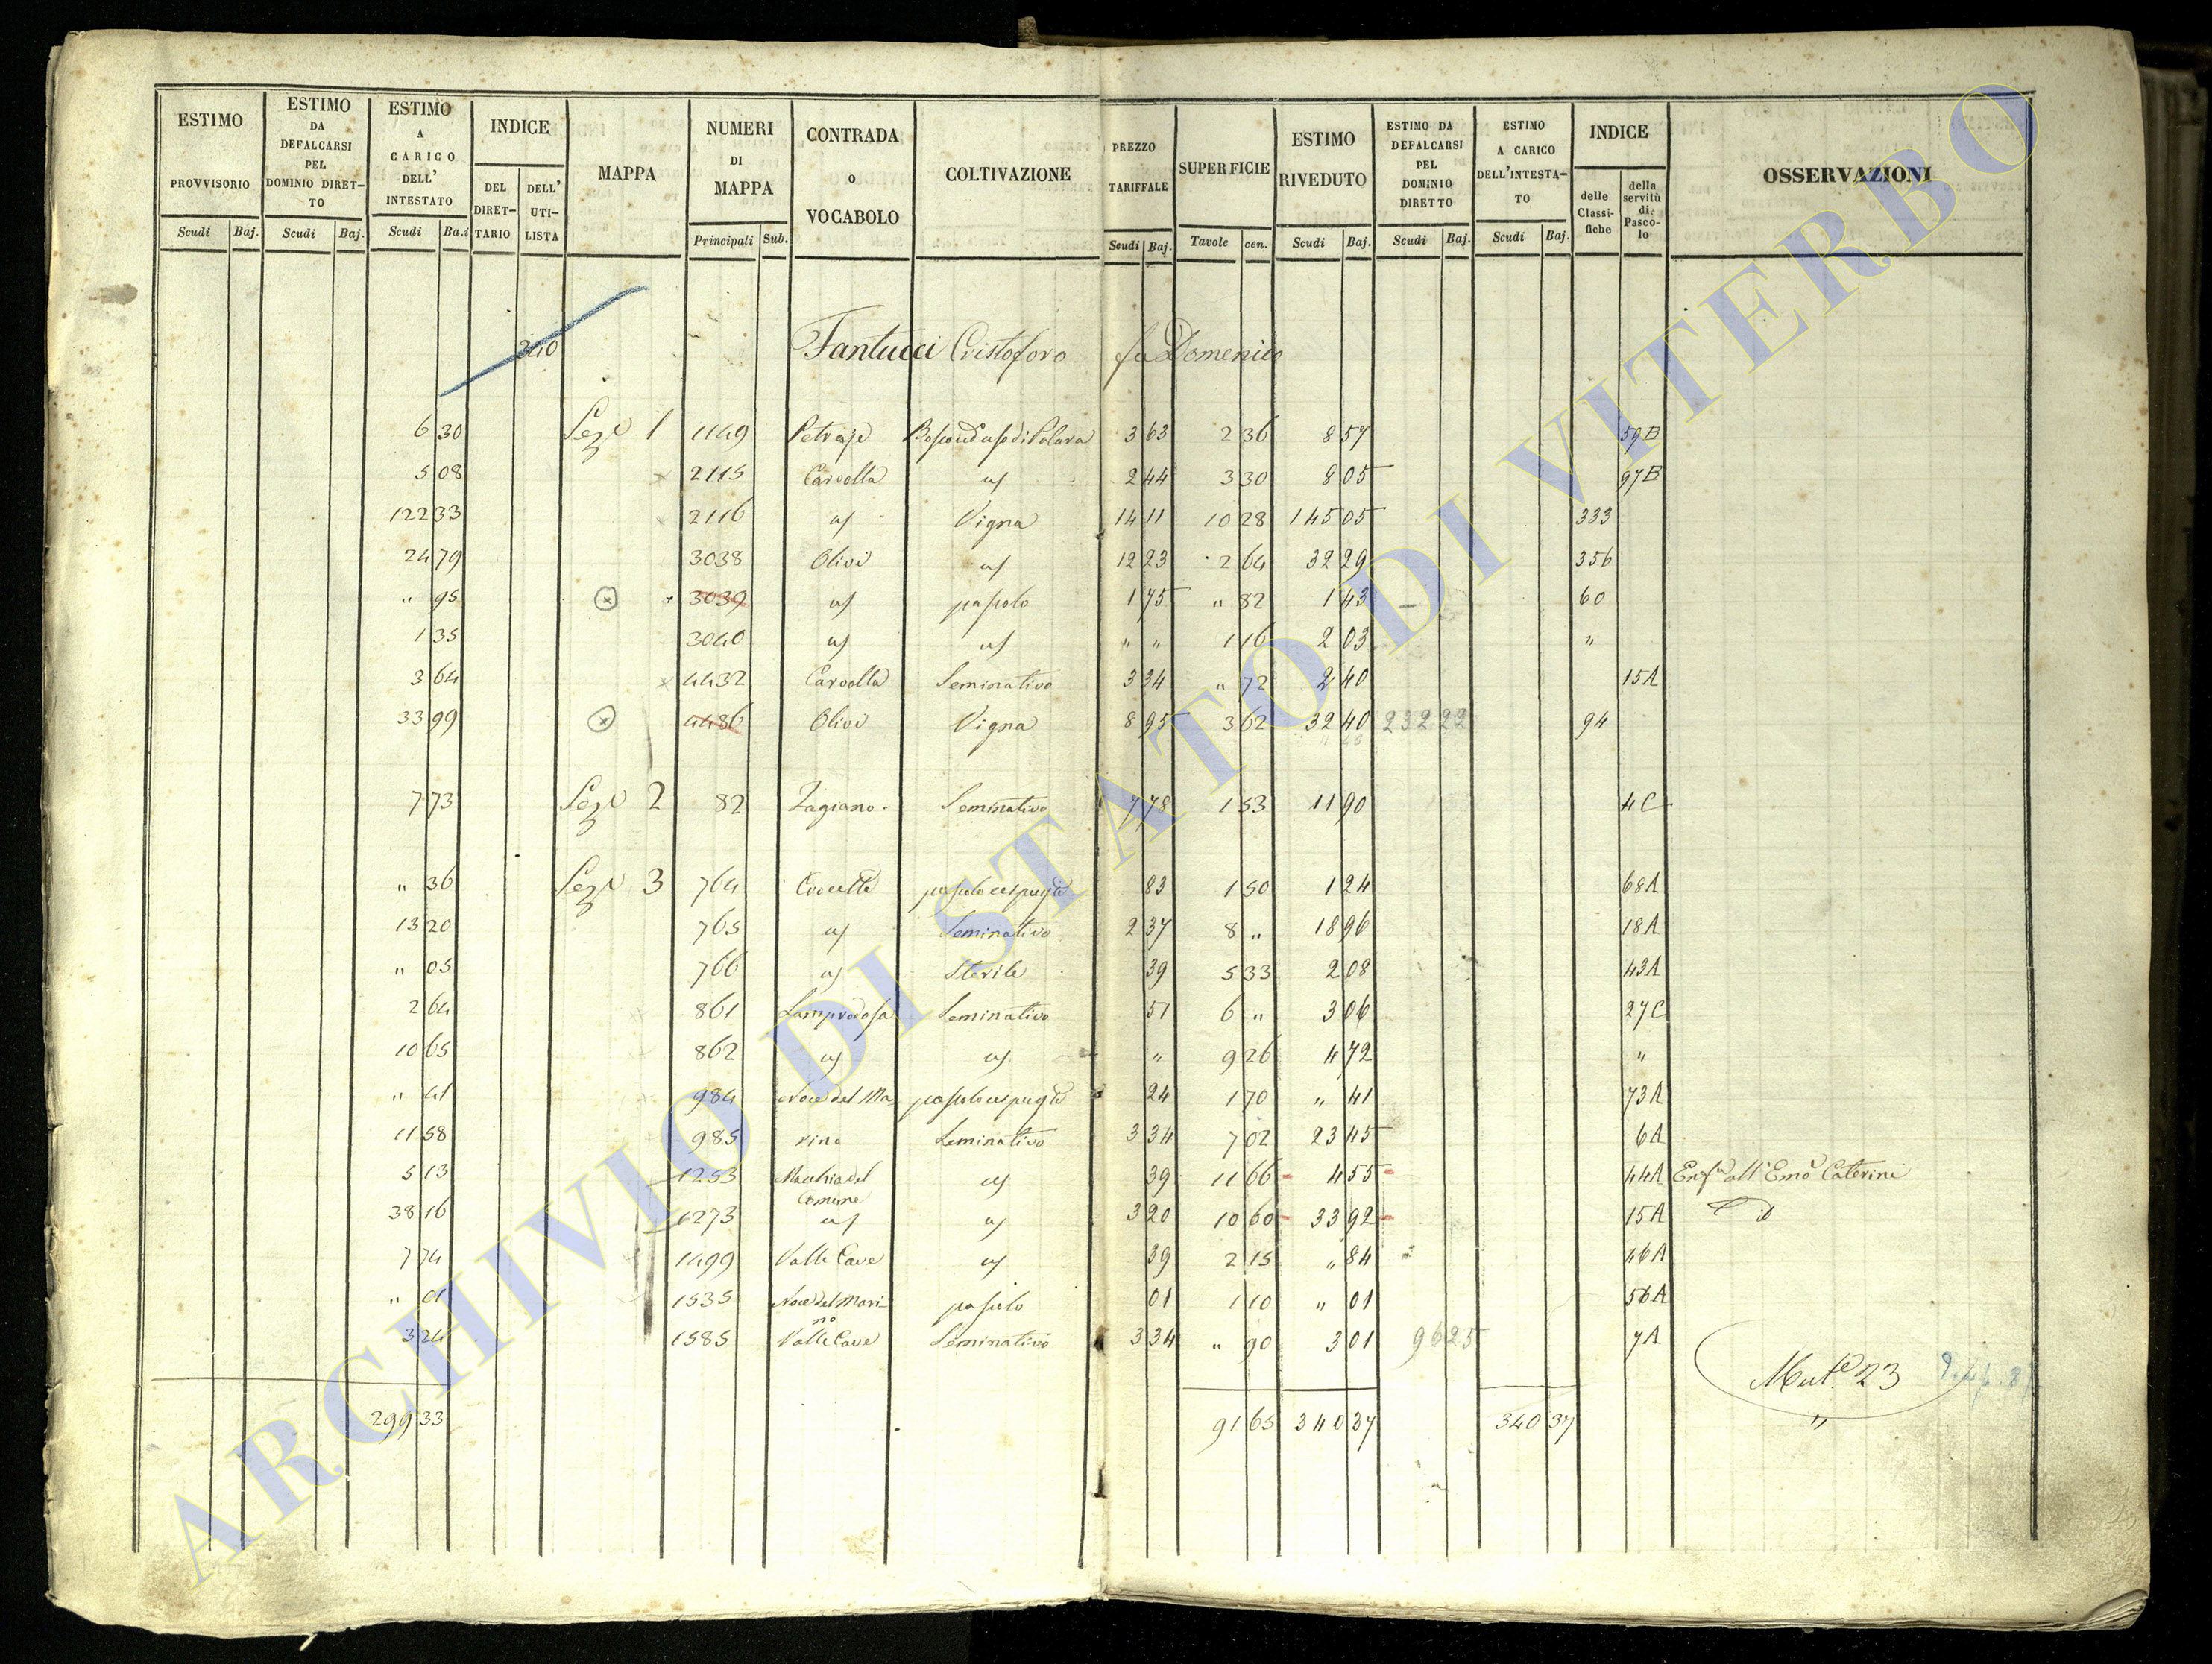 ESTIMO PROVVISORIO Scudi Baj.
ESTIMO DA DEFALCARSI PEL DOMINIO DIRETTO Scudi Baj.
ESTIMO A CARICO DELL' INTESTATO Scudi Ba.i
INDICE DEL DIRETTARIO DELL' UTILISTA
MAPPA
NUMERI DI MAPPA Principali Sub.
CONTRADA o VOCABOLO
COLTIVAZIONE
PREZZO TARIFFALE Scudi Baj.
SUPERFICIE Tavole cen.
ESTIMO RIVEDUTO Scudi Baj.
ESTIMO DA DEFALCARSI PEL DOMINIO DIRETTO Scudi Baj.
ESTIMO A CARICO DELL'INTESTATO Scudi Baj.
INDICE delle Classifiche della servitù di Pascolo
OSSERVAZIONI
240 Fantucci Cristoforo fu Domenico
6 30 Seze 1 1149 3 63 2 36 8 57 59B
5 08 2115 Carcella uf 2 44 3 30 8 05 97B
122 33 2116 uf Vigna 14 11 10 28 145 05 333
24 79 3038 Olivi uf 12 23 2 64 32 29 356
" 95 3039 uf pascolo 1 75 " 82 1 43 60
1 35 3040 uf uf " " 1 16 2 03 "
3 64 4432 Carcella Seminativo 3 34 " 72 2 40 15A
33 99 4486 Olivi Vigna 8 95 3 62 32 40 232 22 94
7 73 Seze 2 82 Zagiano Seminativo 7 78 1 53 11 90 4C
" 36 Seze 3 764 Crocetta pascolo cespugto 83 1 50 1 24 68A
13 20 765 uf Seminativo 2 37 8 " 18 96 18A
" 05 766 uf Sterile 39 5 33 2 08 43A
2 64 861 Seminativo 51 6 " 3 06 27C
10 65 862 uf uf " 9 26 4 72 "
" 41 984 Noce del Ma pascolo cespugto 24 1 70 " 41 73A
11 58 985 rino Seminativo 3 34 7 02 23 45 6A
5 13 1253 Macchia del Comune uf 39 11 66 4 55 44A Enfa all' Emo Caterini
38 16 1273 uf uf 3 20 10 60 33 92 15A id
7 74 1499 Valle Cave uf 39 2 15 " 84 46A
" 01 1535 Noce del Marino pascolo 01 1 10 " 01 56A
3 24 1585 Valle Cave Seminativo 3 34 " 90 3 01 96 25 7A
Mute 23
299 33 91 65 340 37 340 37 "
ARCHIVIO DI STATO DI VITERBO